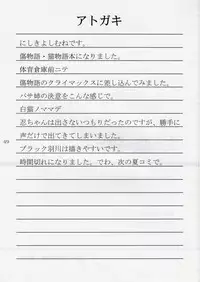 アトガキ
にしきよしむねです。
傷物語・猫物語本になりました。
体育倉庫前ニテ
傷物語のクライマックスに差し込んでみました。
バサ姉の決意をこんな感じで。
白猫ノママデ
忍ちゃんは出さないつもりだったのですが、勝手に
声だけで出てきてしまいました。
ブラック羽川は描きやすいです。
時間切れになりました。でわ、次の夏コミで。